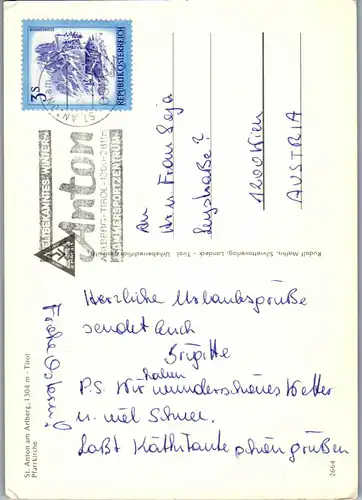 3S
REPUBLIK ÖSTERREICH
WELTBEKANNTES WINTER-
St. Anton
ARLBERG-TIROL-1304-2811m
SOMMERSPORTZENTRUM
An
Hrn Franz Seja
1200 Wien
AUSTRIA
Herzliche Urlaubsgrüße
sendet Euch
Brigitte
P.S. Wir haben wunderschönes Wetter
u. viel Schnee.
Laßt Käthitante schön grüßen
Frohe Ostern!
St. Anton am Arlberg, 1304 m - Tirol:
Pfarrkirche
Rudolf Mathis, Silvrettaverlag, Landeck - Tirol. Urheberrechtlich geschützt
2664